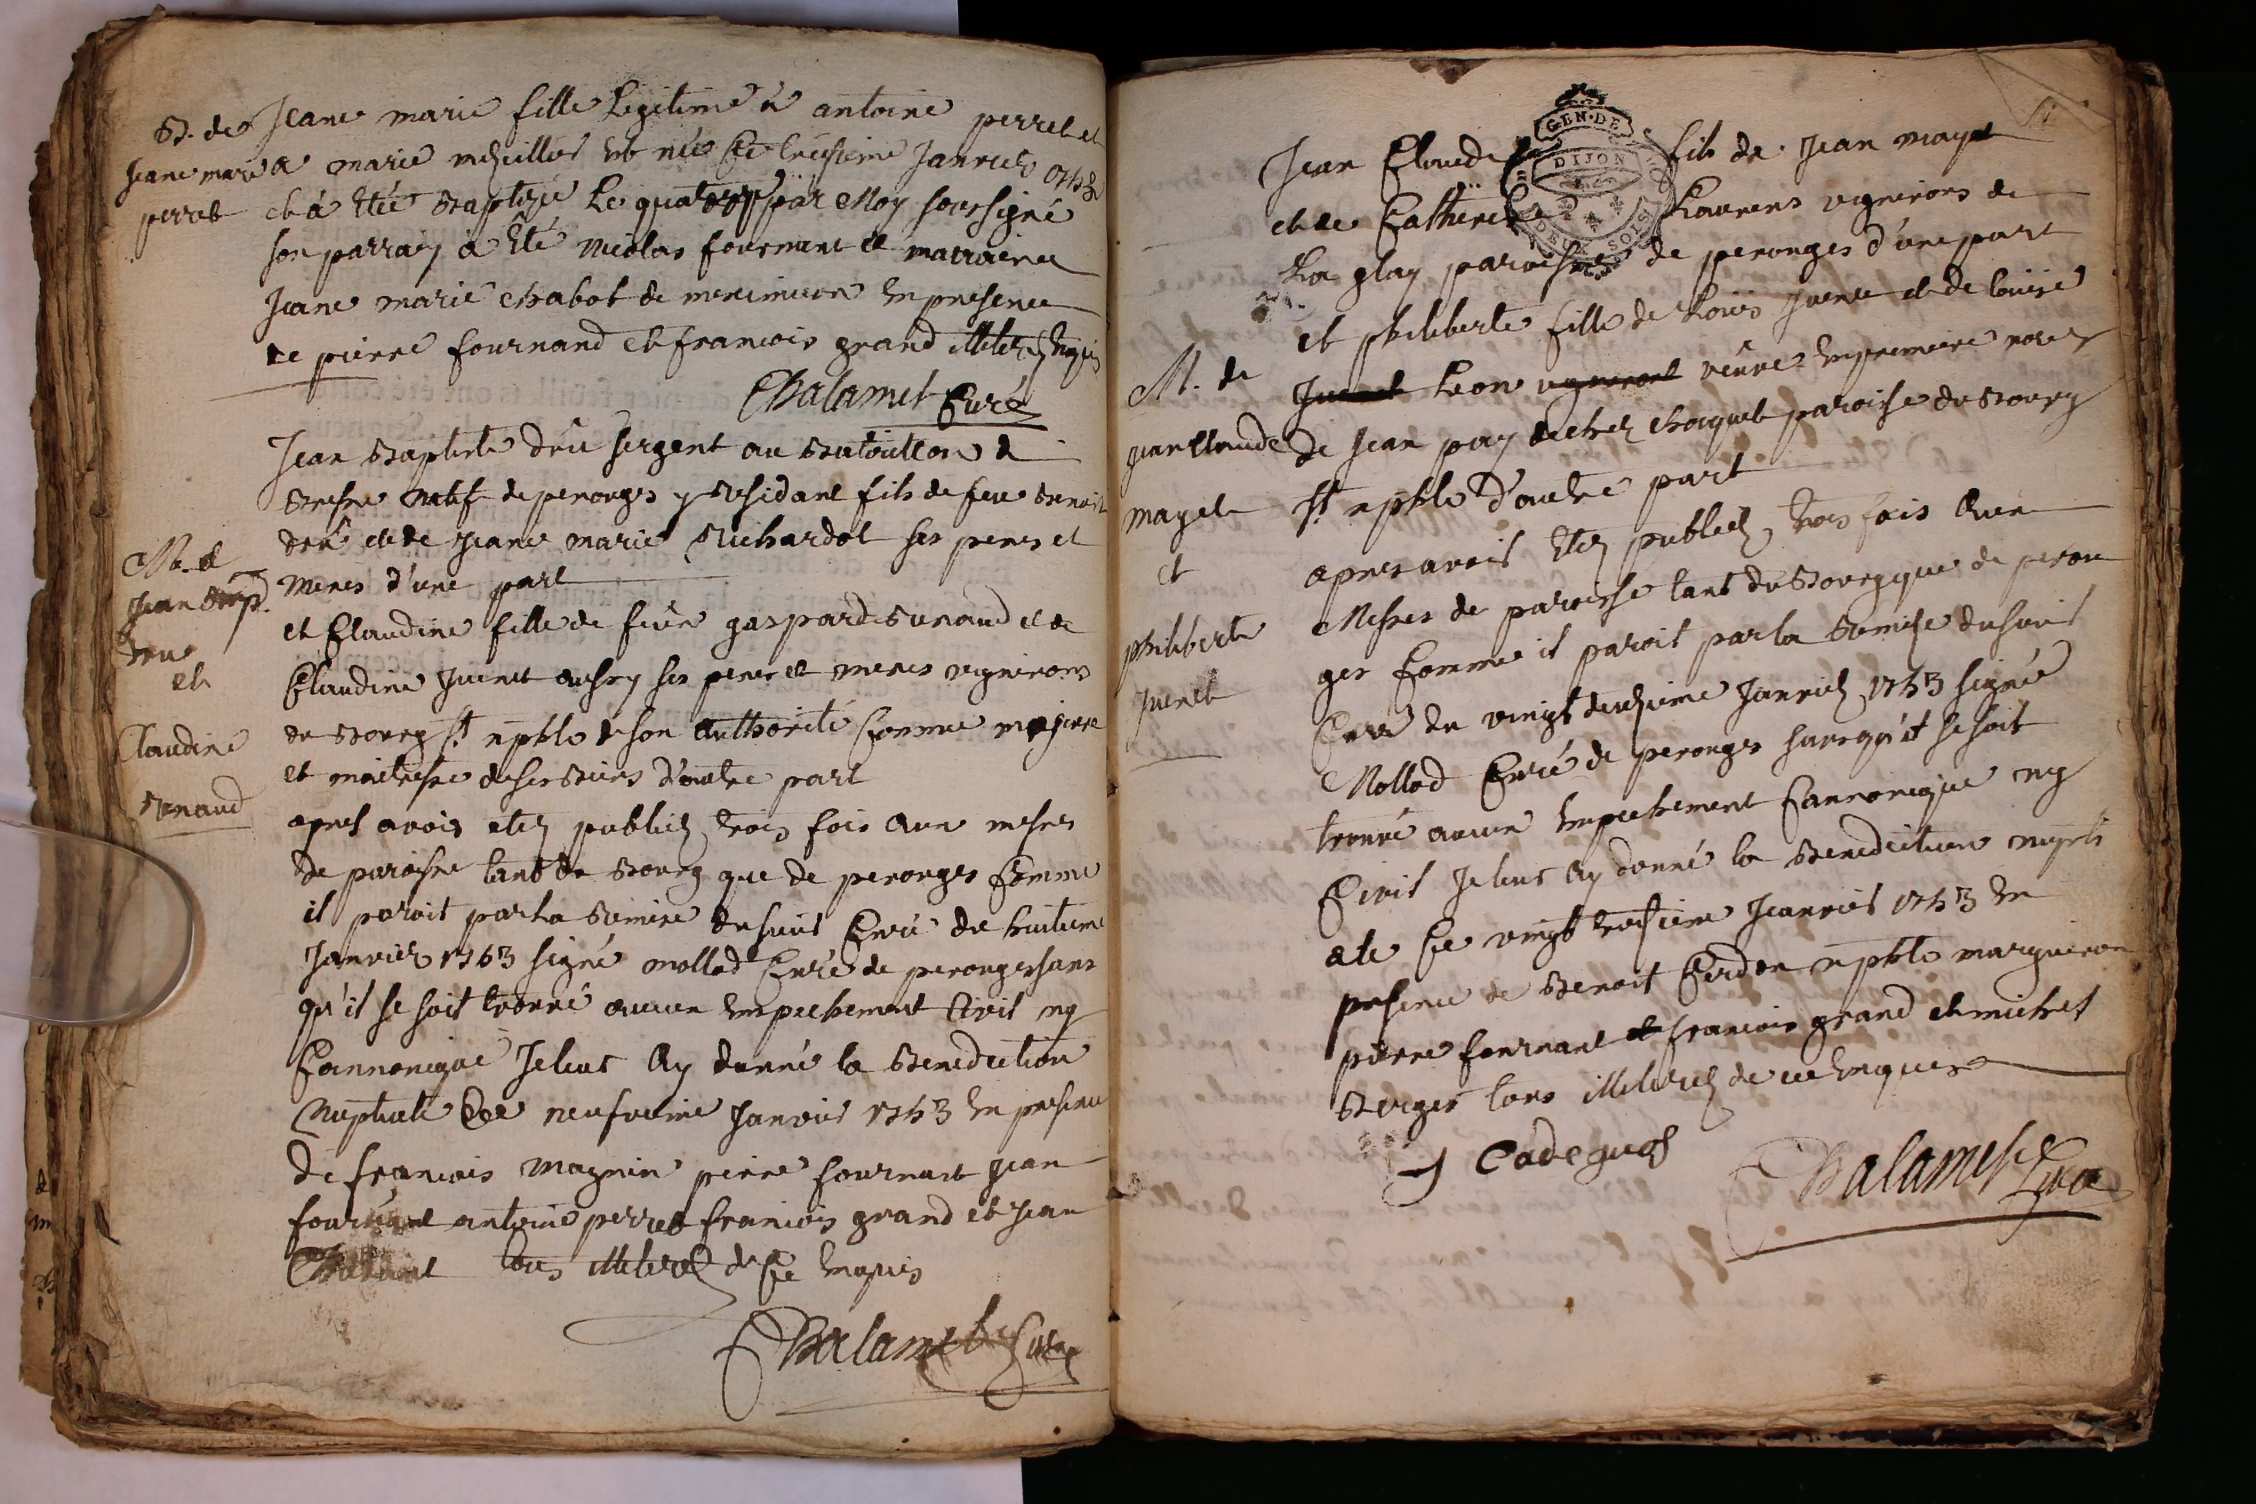 B. de
Jeane marie
perret
Jeane marie fille Legitime à antoine perret et
a marie mezillier est née Ce treizieme Janvier 1743
et à Eté Baptizée Le quatorze par Moy soussigné
son parray à Eté Nicolas fournent et marraine
Jeane marie Chabot de meximieux En presence
de pierre fournand et francois grand illiterez Enquis
Chalamet Curé
M. de
Jean Bap.
dru
et
Claudine
Bunaud
Jean Baptiste dru sergent au Bataillon de
Bresse natif de perouges y Residant fils de feu Benoit
dru et de Jeane marie Richardot ses peres et
meres d'une part
et Claudine fille de feu gaspard Bunaud et de
Claudine Juenet aussy ses peres et meres vignerons
du Bourg st xphle de son authorité Comme majeure
et maitresse de ses Biens d'autre part
apres avoir etez publiez trois fois aux messes
de paroisse tant du Bourg que de perouges Comme
il paroit par la Remise du sieur Curé du huitieme
Janvier 1743 signé mollod Curé de perouges sans
qu'il se soit trouvé aucun Empechement Civil ny
Cannonique Je leur Ay donné la Benediction
Nuptiale Ce neufvieme Janvier 1743 En presence
de francois magnin pierre fournant Jean
fournant antoine perret francois grand et Jean
tous illiterez de Ce Enquis
Chalamet Curé
M. de
Jean Claude
mayet
et
philiberte
Juenet
GEN. DE
DIJON
DEUX SOLS
Jean Claude fils de Jean mayet
et de Catherine Laurens vignerons de
La glay paroisse de perouges d'une part
et philiberte fille de Louis Juenet et de louise
Leon veuve En premiere noces
de Jean pay de chez Chaquet paroisse du Bourg
st xphle d'autre part
apres avoir Etez publiez trois fois Aux
Messes de paroisse tant du Bourg que de perou
ges Comme il paroit par la Remise du sieur
Curé du vingt deuxieme Janvier 1743 signé
Mollod Curé de perouges sans qu'il se soit
trouvé aucun Empechement Cannonique ny
Civil Je leur Ay donné la Benediction nupti
ale Ce vingt troisieme Janvier 1743 En
presence de Benoit Cerdon xphle margueron
pierre fournant francois grand et michel
Berger tous illiterez de ce Enquis
Chalamet Curé